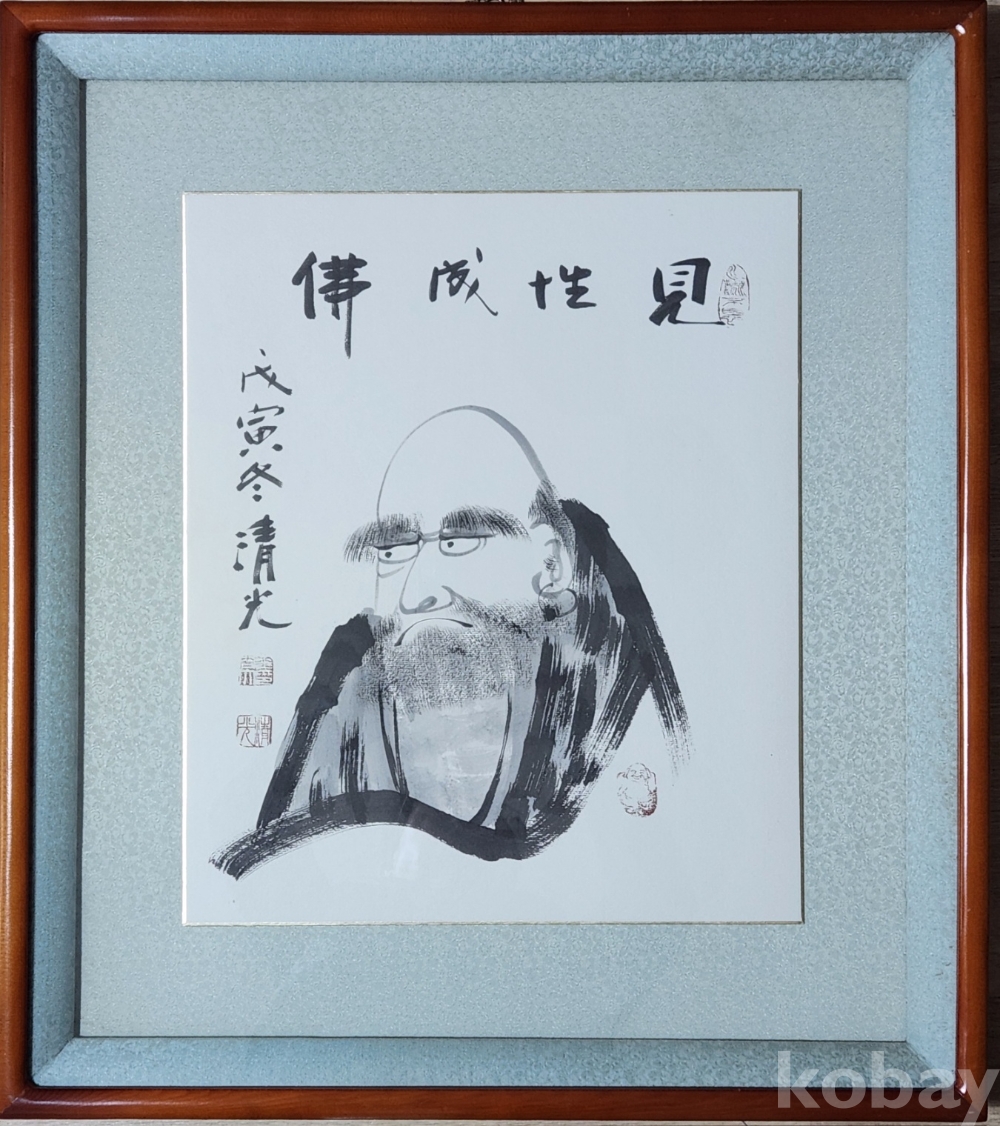 見性成佛
戊寅冬清光
清光
kobay